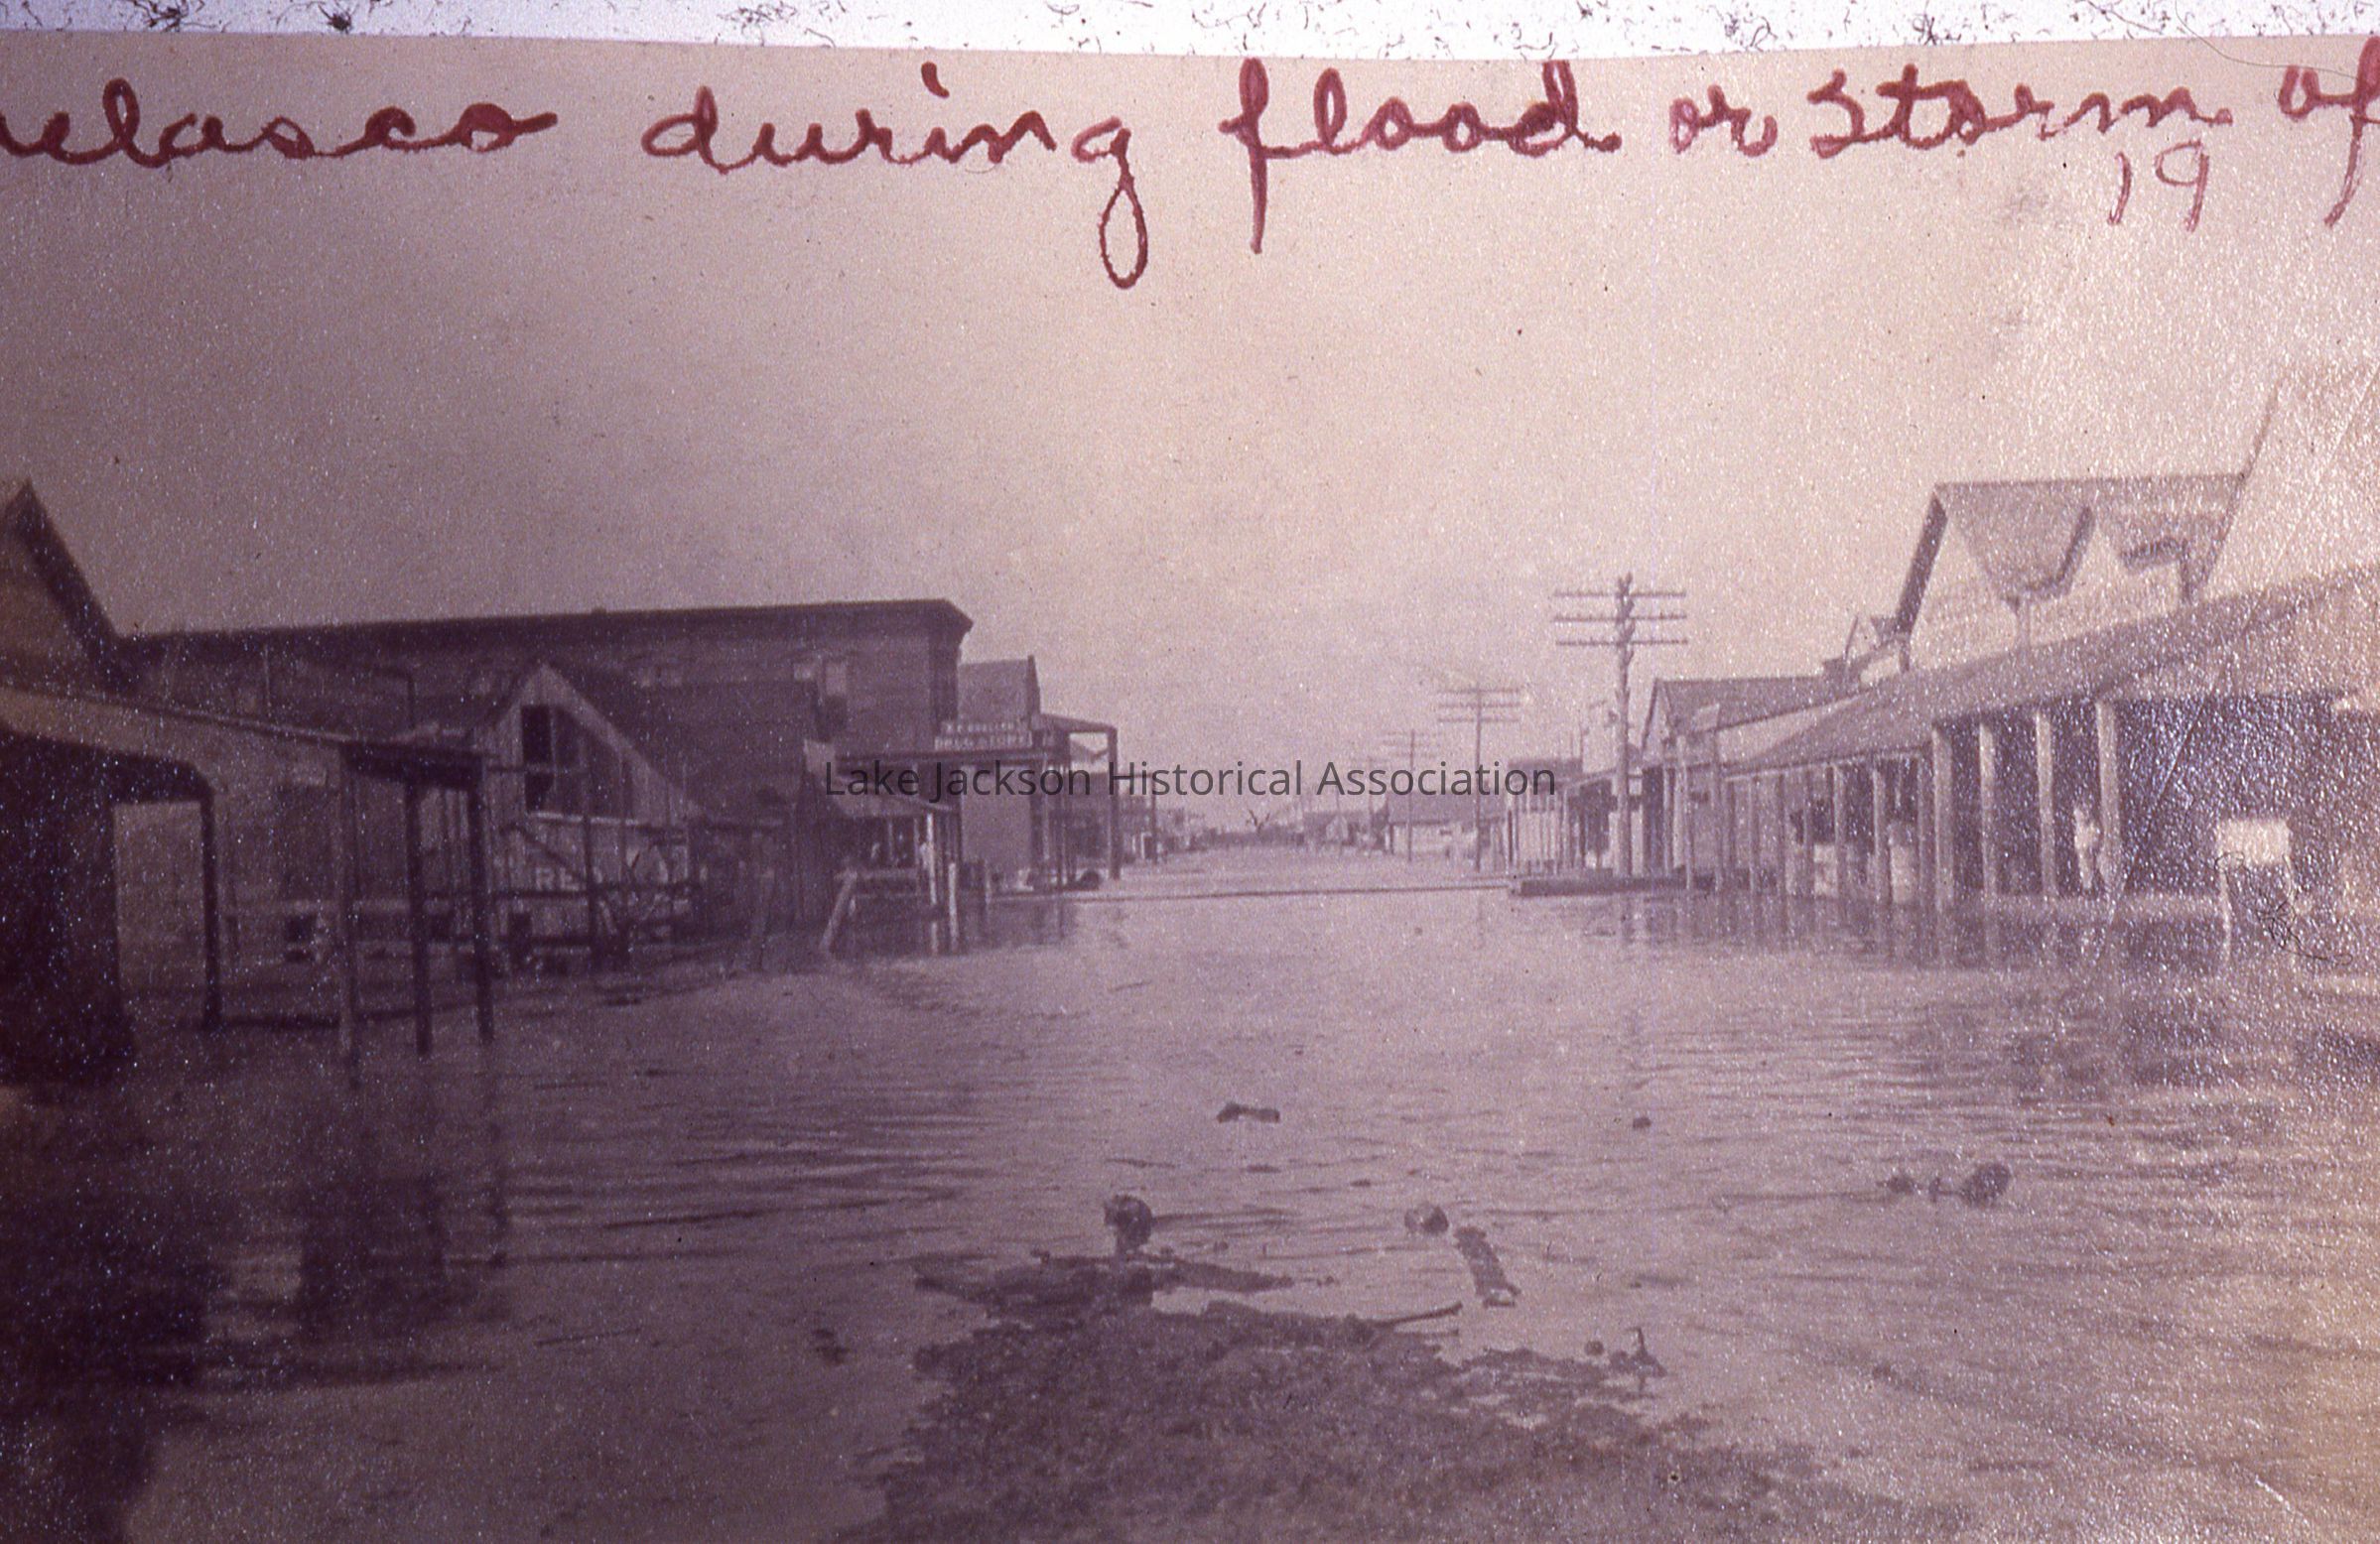 velasco during flood or storm of
19
DRUG STORE
Lake Jackson Historical Association
RE